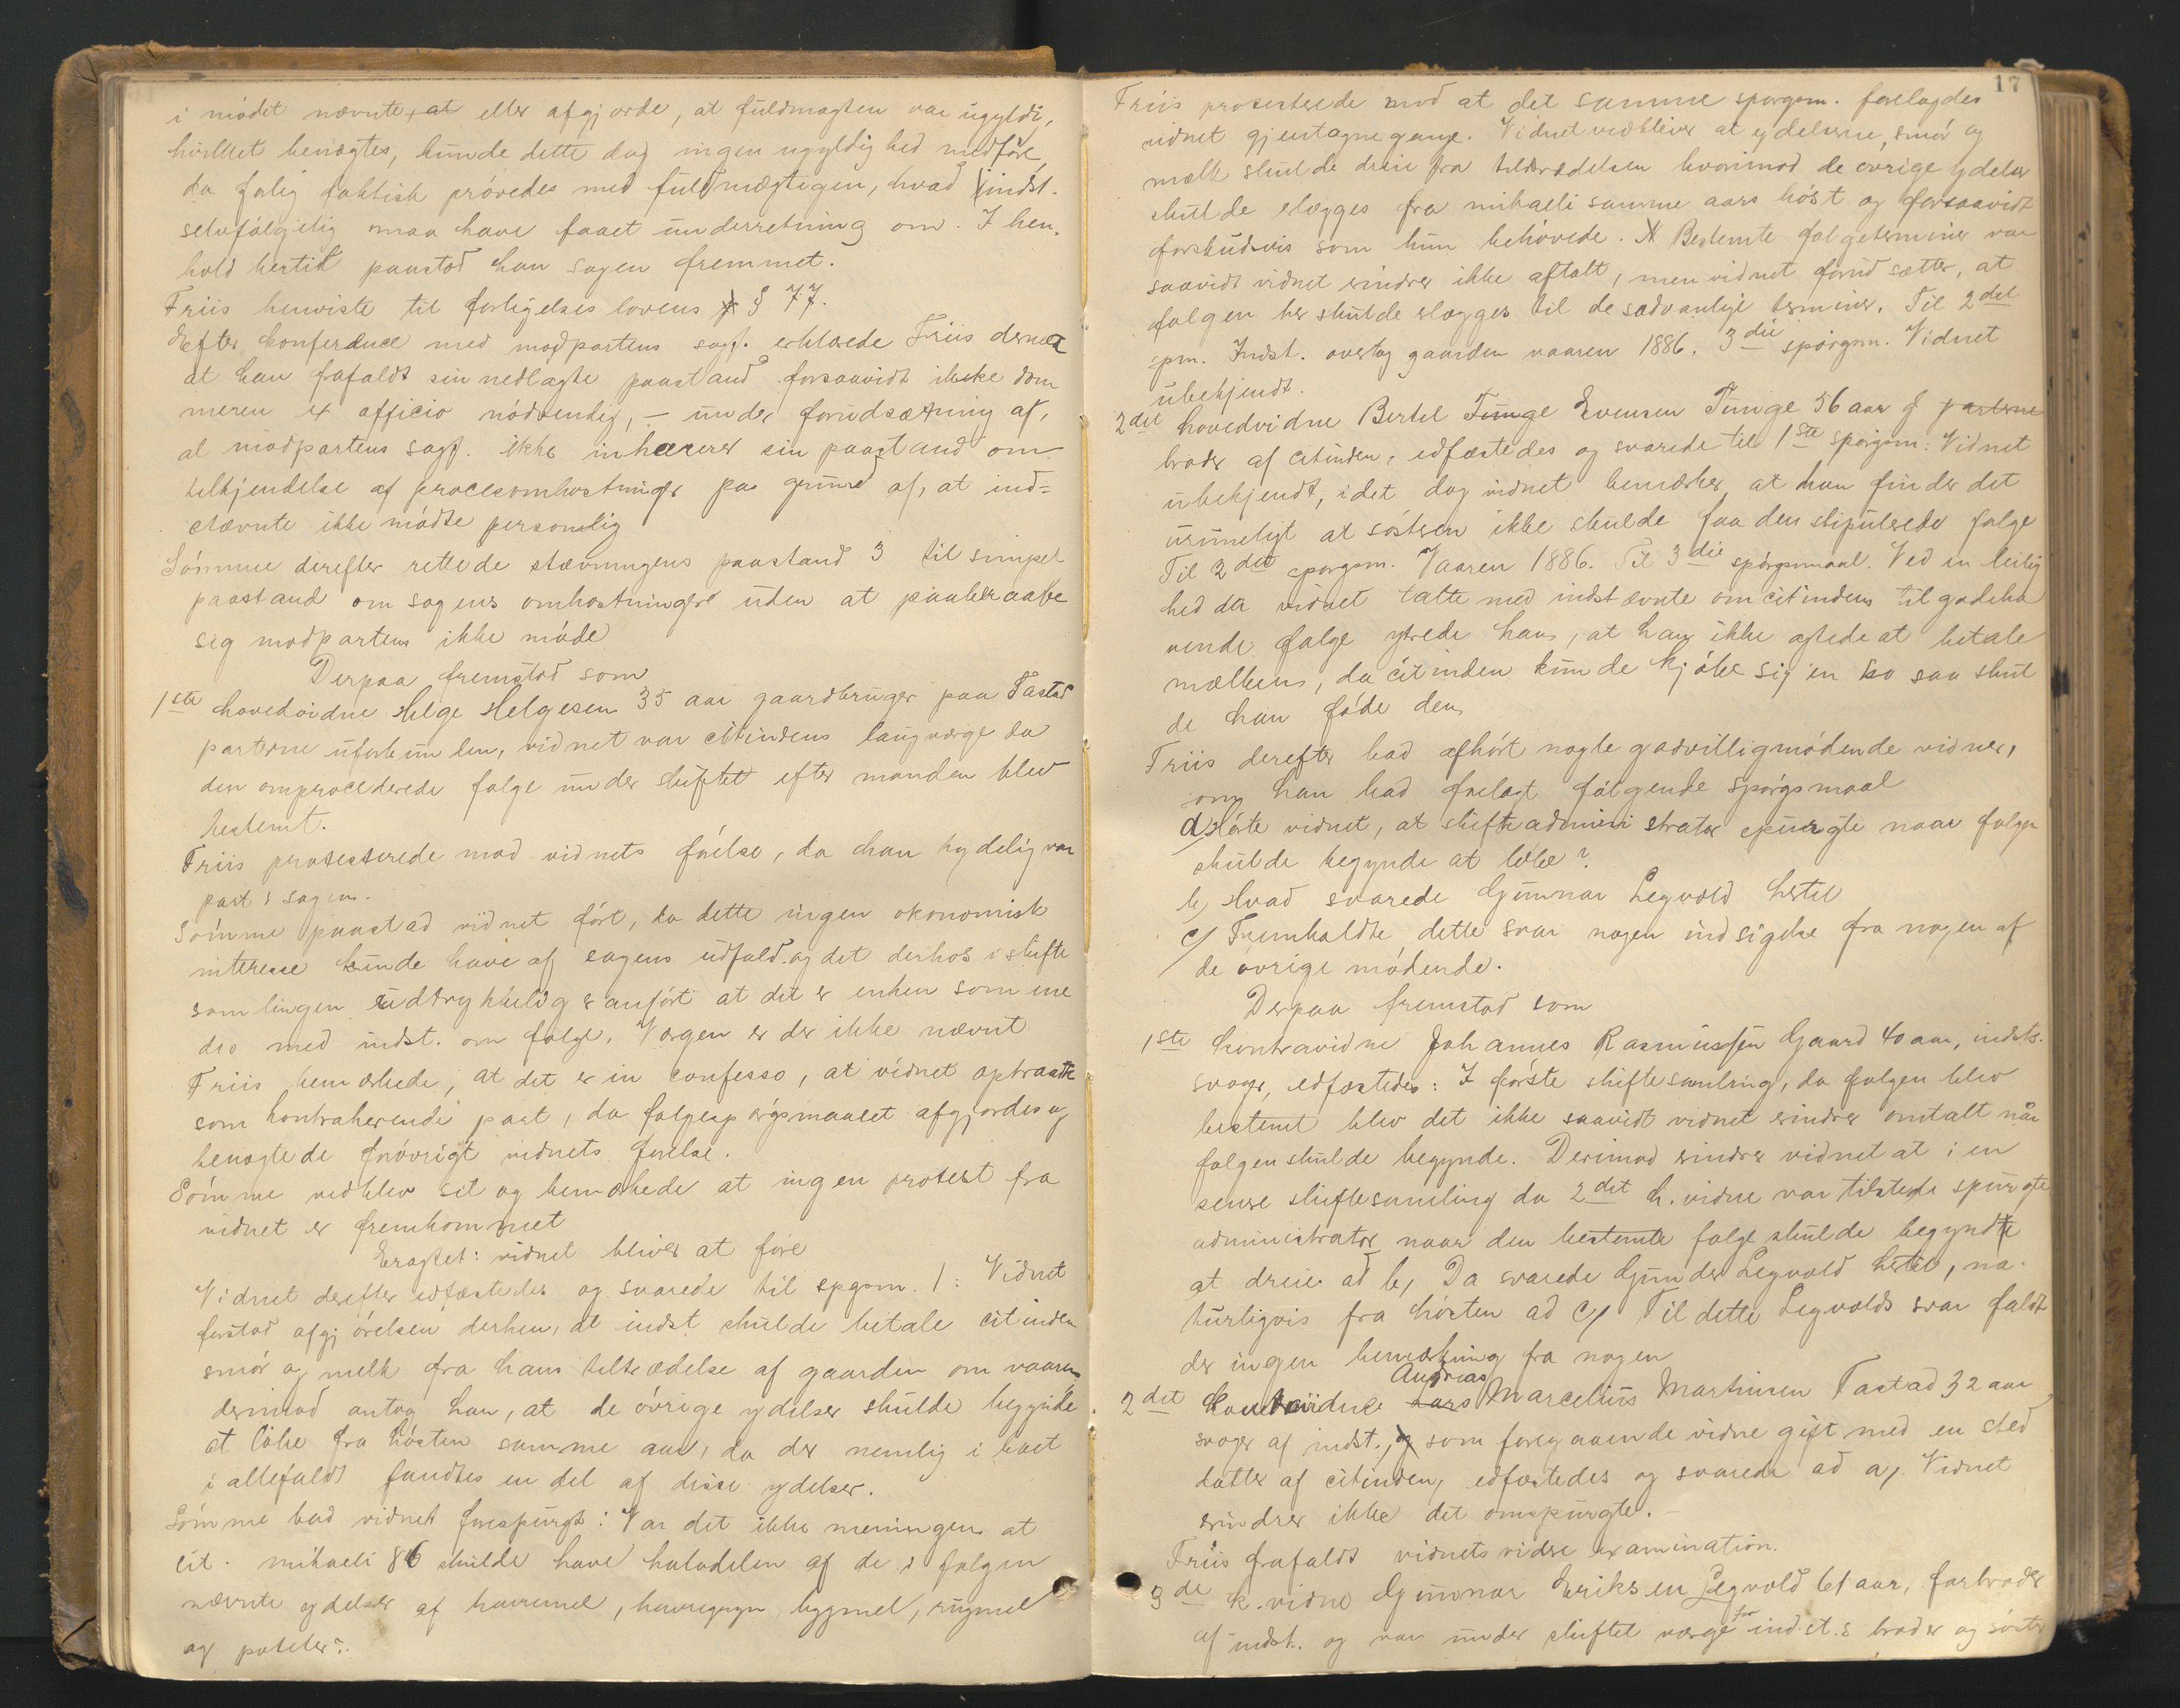 i mödet nævnte, at eller afgjorde, at fuldmagten var ugyldi,
hvilket benægtes, kunde dette dog ingen ugyldighed medføre,
da forlig faktisk prövedes med fuldmægtigen, hvad indst.
selvfölgelig maa have faaet underretning om. I hen-
hold hertil paastod han sagen fremmet.
Friis henviste til forligelseslovens § 77.
Efter konferance med modpartens sagf. erklærede Friis derpaa
at han frafaldt sin nedlagte paastand forsaavidt ikke dom
meren ex officio nödvendig, – under forudsætning af,
at modpartens sagf. ikke inhærerer sin paastand om
tilkjendelse af procesomkostninger paa grund af, at ind=
stævnte ikke mödte personlig
Sömme derefter rettede stævningens paastand 3 til simpel
paastand om sagens omkostninger uden at paaberaabe
sig modpartens ikke möde
Derpaa fremstod som
1ste hovedvidne Helge Helgesen 35 aar gaardbruger paa Tastad
parterne uforbunden, vidnet var citindens laugværge da
den omprocederede folge under skiftet efter manden blev
bestemt.
Friis protesterede mod vidnets förelse, da han tydelig var
part i sagen.
Sömme paastod vidnet fört, da dette ingen okonomisk
interesse kunde have af sagens udfald og det derhos i skifte
samlingen udtrykkelig er anfört at det er enken som ene
des med indst. om folge. Værgen er der ikke nævnt
Friis bemærkede, at det er in confesso, at vidnet optraadte
som kontraherende part, da folgespörgsmaalet afgjordes og
benægtede forövrigt vidnets förelse.
Sömme vedblev sit og bemærkede at ingen protest fra
vidnet er fremkommet
Eragtet: vidnet bliver at före
Vidnet derefter edfæstedes og svarede til spgsm. 1: Vidnet
forstod afgjörelsen derhen, at indst skulde betale citinden
smör og melk fra hans tiltrædelse af gaarden om vaaren
derimod antog han, at de övrige ydelser skulde begynde
at löbe fra hösten samme aar, da der nemlig i boet
i allefald fandtes en del af disse ydelser.
Sömme bad vidnet forespurgt: Var det ikke meningen at
cit. mikaeli 86 skulde have halvdelen af de i folgen
nævnte ydelser af havremel, havregryn, bygmel, rugmel
og poteter?.
17
Friis protesterede mod at det samme spörgsm. forelagdes
vidnet gjentagne gange. Vidnet vedbliver at ydelserne, smör og
mælk skulde dreie fra tiltrædelsen hvorimod de ovrige ydelser
skulde erlægges fra mikaeli samme aars höst og forsaavidt
forskudsvis som hun behövede. Bestemte folgeterminer var
saavidt vidnet erindrer ikke aftalt, men vidnet forudsætter, at
folgen her skulde erlægges til de sædvanlige terminer. Til 2det
spm. Indst. overtog gaarden vaaren 1886. 3die spörgsm. Vidnet
ubekjendt.
2det hovedvidne Bertel Tunge Evensen Tunge 56 aar g parterne
broder af citinden, edfæstedes og svarede til 1ste spörgsm: Vidnet
ubekjendt, idet dog vidnet bemærker, at han finder det
urimeligt at söstren ikke skulde faa den stipulerede folge
Til 2det spörgsm. Vaaren 1886. Til 3die spörgsmaal. Ved en leilig
hed da vidnet talte med indstævnte om citindens tilgodeha
vende folge ytrede han, at han ikke agtede at betale
mælken, da citinden kunde kjöbe sig en ko saa skul
de han föde den
Friis derefter bad afhört nogle godvilligmödende vidner,
som han bad forelagt fölgende spörgsmaal
a) Hörte vidnet, at skifteadministrator spurgte naar folgen
skulde begynde at löbe?
b, Hvad svarede Gunnar Legvold hertil
c/ Fremkaldte dette svar nogen indsigelse fra nogen af
de ovrige mödende.
Derpaa fremstod som
1ste kontravidne Johannes Rasmussen Gaard 40 aar, indsts.
svoger, edfæstedes: I förste skiftesamling, da folgen blev
bestemt blev det ikke saavidt vidnet erindrer omtalt når
folgen skulde begynde. Derimod erindrer vidnet at i en
senere skiftesamling da 2det h. vidne var tilstede spurgte
administrator naar den bestemte folge skulde begynde
at dreie ad b, Da svarede Gunder Legvold hertil, na-
turligvis fra hösten ad c/ Til dette Legvolds svar faldt
der ingen bemærkning fra nogen
Andreas
2det kontravidne Lars Marcelius Martinsen Tastad 32 aar
svoger af indst., og som foregaaende vidne gift med en sted
datter af citinden, edfæstedes og svarede ad a, Vidnet
erindrer ikke det omspurgte. –
Friis frafaldt vidnets videre examination.
3de k. vidne Gunnar Eriksen Legvold 61 aar, farbroder
af indst. og var under skiftet værge for indst.s broder og söster